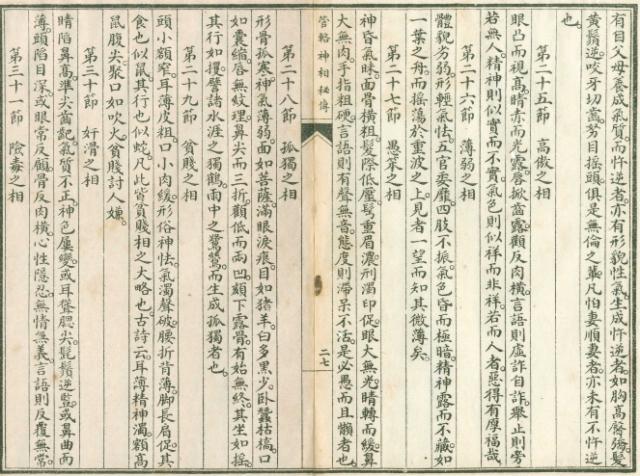 有自父母養成氣質忤逆者亦有形貌性氣生成忤逆者如胸高臀殤髮
黃鬚逆咬牙切齒努目搖頭俱是無倫之輩凡怕妻順妻者亦未有不忤逆
也
第二十五節 高傲之相
眼凸而視高睛赤而光露唇掀齒露顴反肉橫言語則虛詐自詐舉止則旁
若無人精神則似實而不實氣色則似祥而非祥若而人者惡得有厚福哉
第二十六節 薄弱之相
體貌劣弱形輕氣怯五官委靡四肢不振氣色昏而極暗精神露而不藏如
一葉之舟而搖蕩於重波之上見者一望而知其微薄矣
第二十七節 愚笨之相
神昏氣昧面骨橫粗髮際低壓髩重眉濃刑濁印促眼大無光睛轉而緩鼻
大無肉手指粗硬言語則有聲無音態度則滯呆不活是必愚而且懶者也
管輅神相秘傳
二七
第二十八節 孤獨之相
形骨孤寒神氣薄弱面如菩薩滿眼淚痕目如猪羊白多黑少卧蠶枯槁口
如囊縮唇無紋理鼻尖而三折顴低而兩凹頦下露骨有始無終其坐如搖
其行如攫譬諸水涯之獨鶴雨中之鷺鷥而生成孤獨者也
第二十九節 貧賤之相
頭小額窄耳薄皮粗口小肉緩形俗神怯氣濁聲破腰折背薄脚長肩促其
食也似鼠其行也似蛇凡此皆貧賤相之大略也古詩云耳薄精神濁額高
鼠腹尖聚口如吹火貧賤討人嫌
第三十節 奸滑之相
睛陷鼻高準尖齒齙氣質不正神色屢變或耳聳腮尖髭鬚逆監或鼻曲而
薄頭陷目深或眼常反顧骨反肉橫心性隱忍無情無義言語則反覆無常
第三十一節 陰毒之相